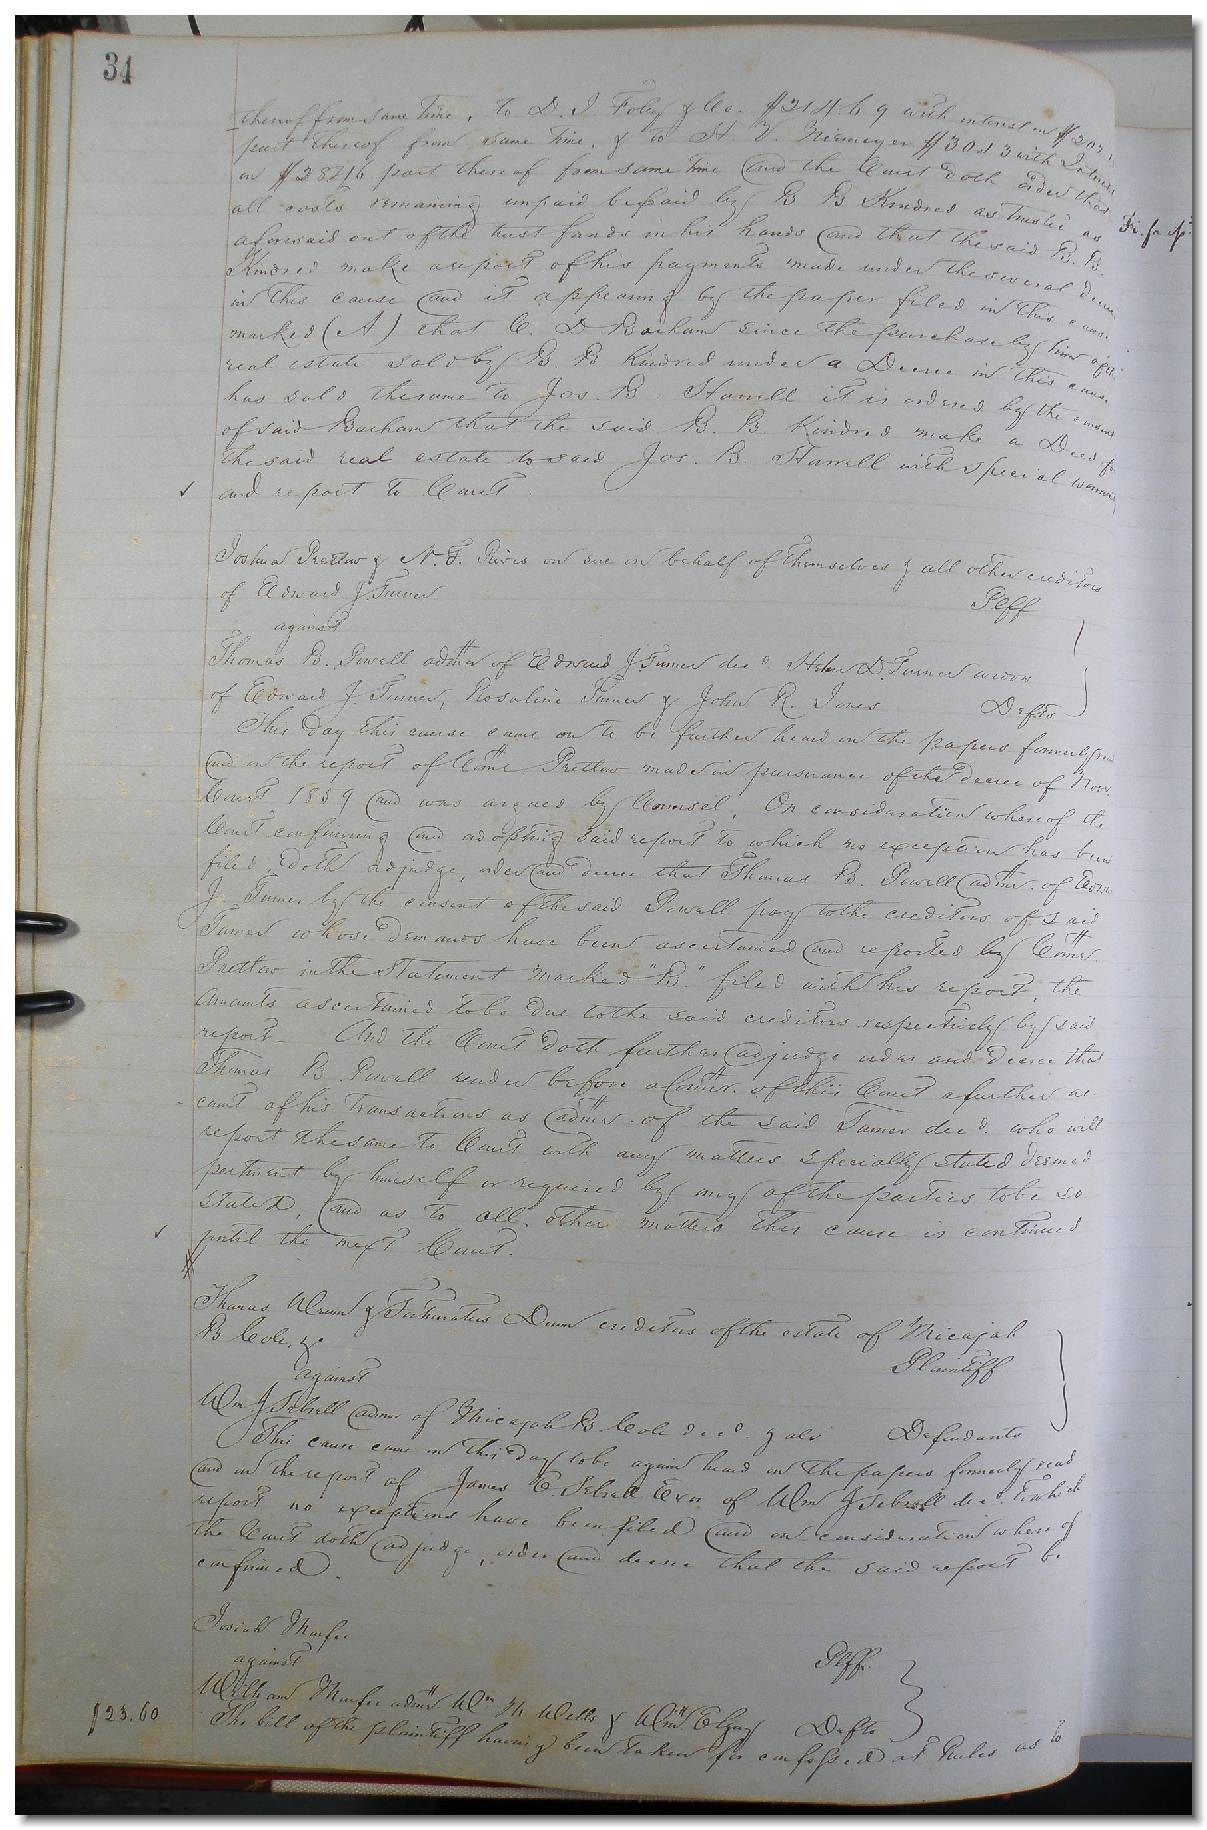 34
thereof from same time, to D. J. Foley & Co. $214.69 with interest on $207
part thereof from same time, & to H. V. Niemeyer $30.83 with Interest
on $28.16 part thereof from same time and the Court doth order that
all costs remaining unpaid be paid by B B Kindred as trustee as
aforesaid out of the trust funds in his hands and that the said B. B.
Kindred make a report of his payments made under the several Decrees
in this cause and it appearing by the paper filed in this cause
marked (A) that C. D Barham since the purchase by him of the
real estate sold by B B Kindred under a Decree in this cause
has sold the same to Jos. B Harrell it is ordered by the consent
of said Barham that the said B. B. Kindred make a Deed for
the said real estate to said Jos. B. Harrell with special warranty
and report to Court
Joshua Pretlow & N. F. Rives on sue on behalf of themselves & all other creditors
of Edward J. Turner Plff
against
Thomas B. Powell admr of Edward J. Turner decd. Helen D. Turner widow
of Edward J. Turner, Rosaline Turner & John R. Jones Defts
This day this cause came on to be further heard on the papers formerly read
and on the report of Comr Pretlow made in pursuance of the decree of Nov.
Court 1859 and was argued by Counsel, On consideration whereof the
Court confirming and adopting said report to which no exception has been
filed, doth adjudge, order and decree that Thomas B. Powell admr. of Edwd
J. Turner by the consent of the said Powell pay to the creditors of said
Turner whose demands have been ascertained and reported by Comr.
Pretlow in the statement marked "B." filed with his report, the
amounts ascertained to be due to the said creditors respectively by said
report— And the Court doth further adjudge order and decree that
Thomas B. Powell render before a Comr. of this Court a further ac-
count of his transactions as admr. of the said Turner decd. who will
report the same to Court with any matters specially stated deemed
pertinent by himself or required by any of the parties to be so
stated, and as to all other matters this cause is continued
until the next Court.
Thomas & Fortunatus Drum creditors of the estate of Micajah
B Cole, &c Plaintiff
against
Wm J Sebrell admr of Micajah B. Cole decd. & als Defendants
This cause came on this day to be again heard on the papers formerly read
and on the report of James E. Sebrell Exr. of Wm J Sebrell decd. to which
report no exceptions have been filed and on consideration whereof
the Court doth adjudge, order and decree that the said report be
confirmed.
Josiah Murfee
against Plff.
William Murfee admr Wm H Wells & Wm Defts
$23.60 The bill of the plaintiff having been taken for confessed at Rules as to